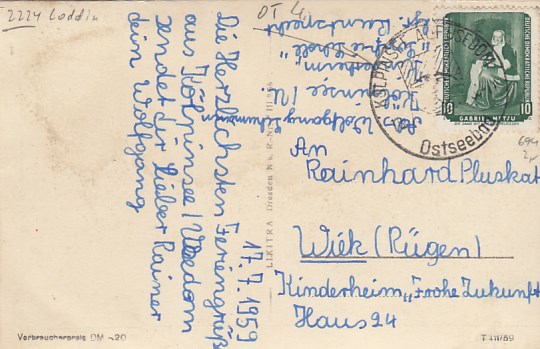 2224 Loddin
OT 4,
17.7.1959
Die Herzlichsten Feriengrüß
aus Kölpinsee/Usedom
sendet dir lieber Rainer
dein Wolfgang
Abs. Wolfgang
Kölpinsee/U.
KÖLPINSEE AUF USEDOM
Ostseebad
DEUTSCHE DEMOKRATISCHE REPUBLIK
10 10
GABRIEL METSU
694
An
Rainhard Pluskat
Wiek (Rügen)
Kinderheim „Frohe Zukunft
Haus 24
LIKITRA Dresden N 6
Verbraucherpreis DM -.20
T 411/59